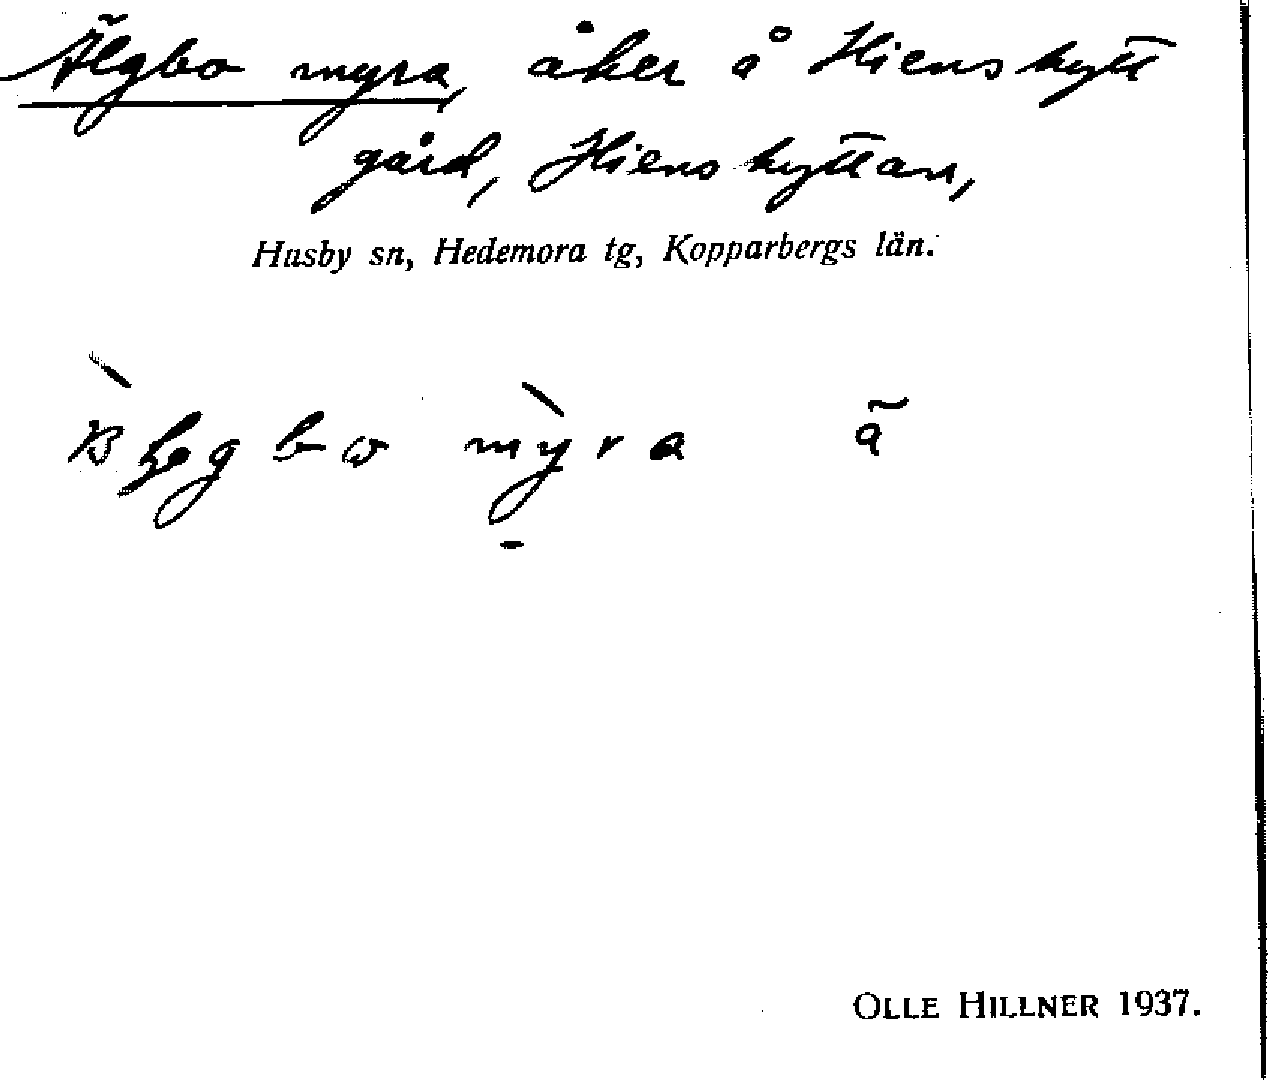 Älgbo myra, åker å Hienshytt
gård, Hienshyttan,
Husby sn, Hedemora tg, Kopparbergs län.
myra ã
OLLE HILLNER 1937.